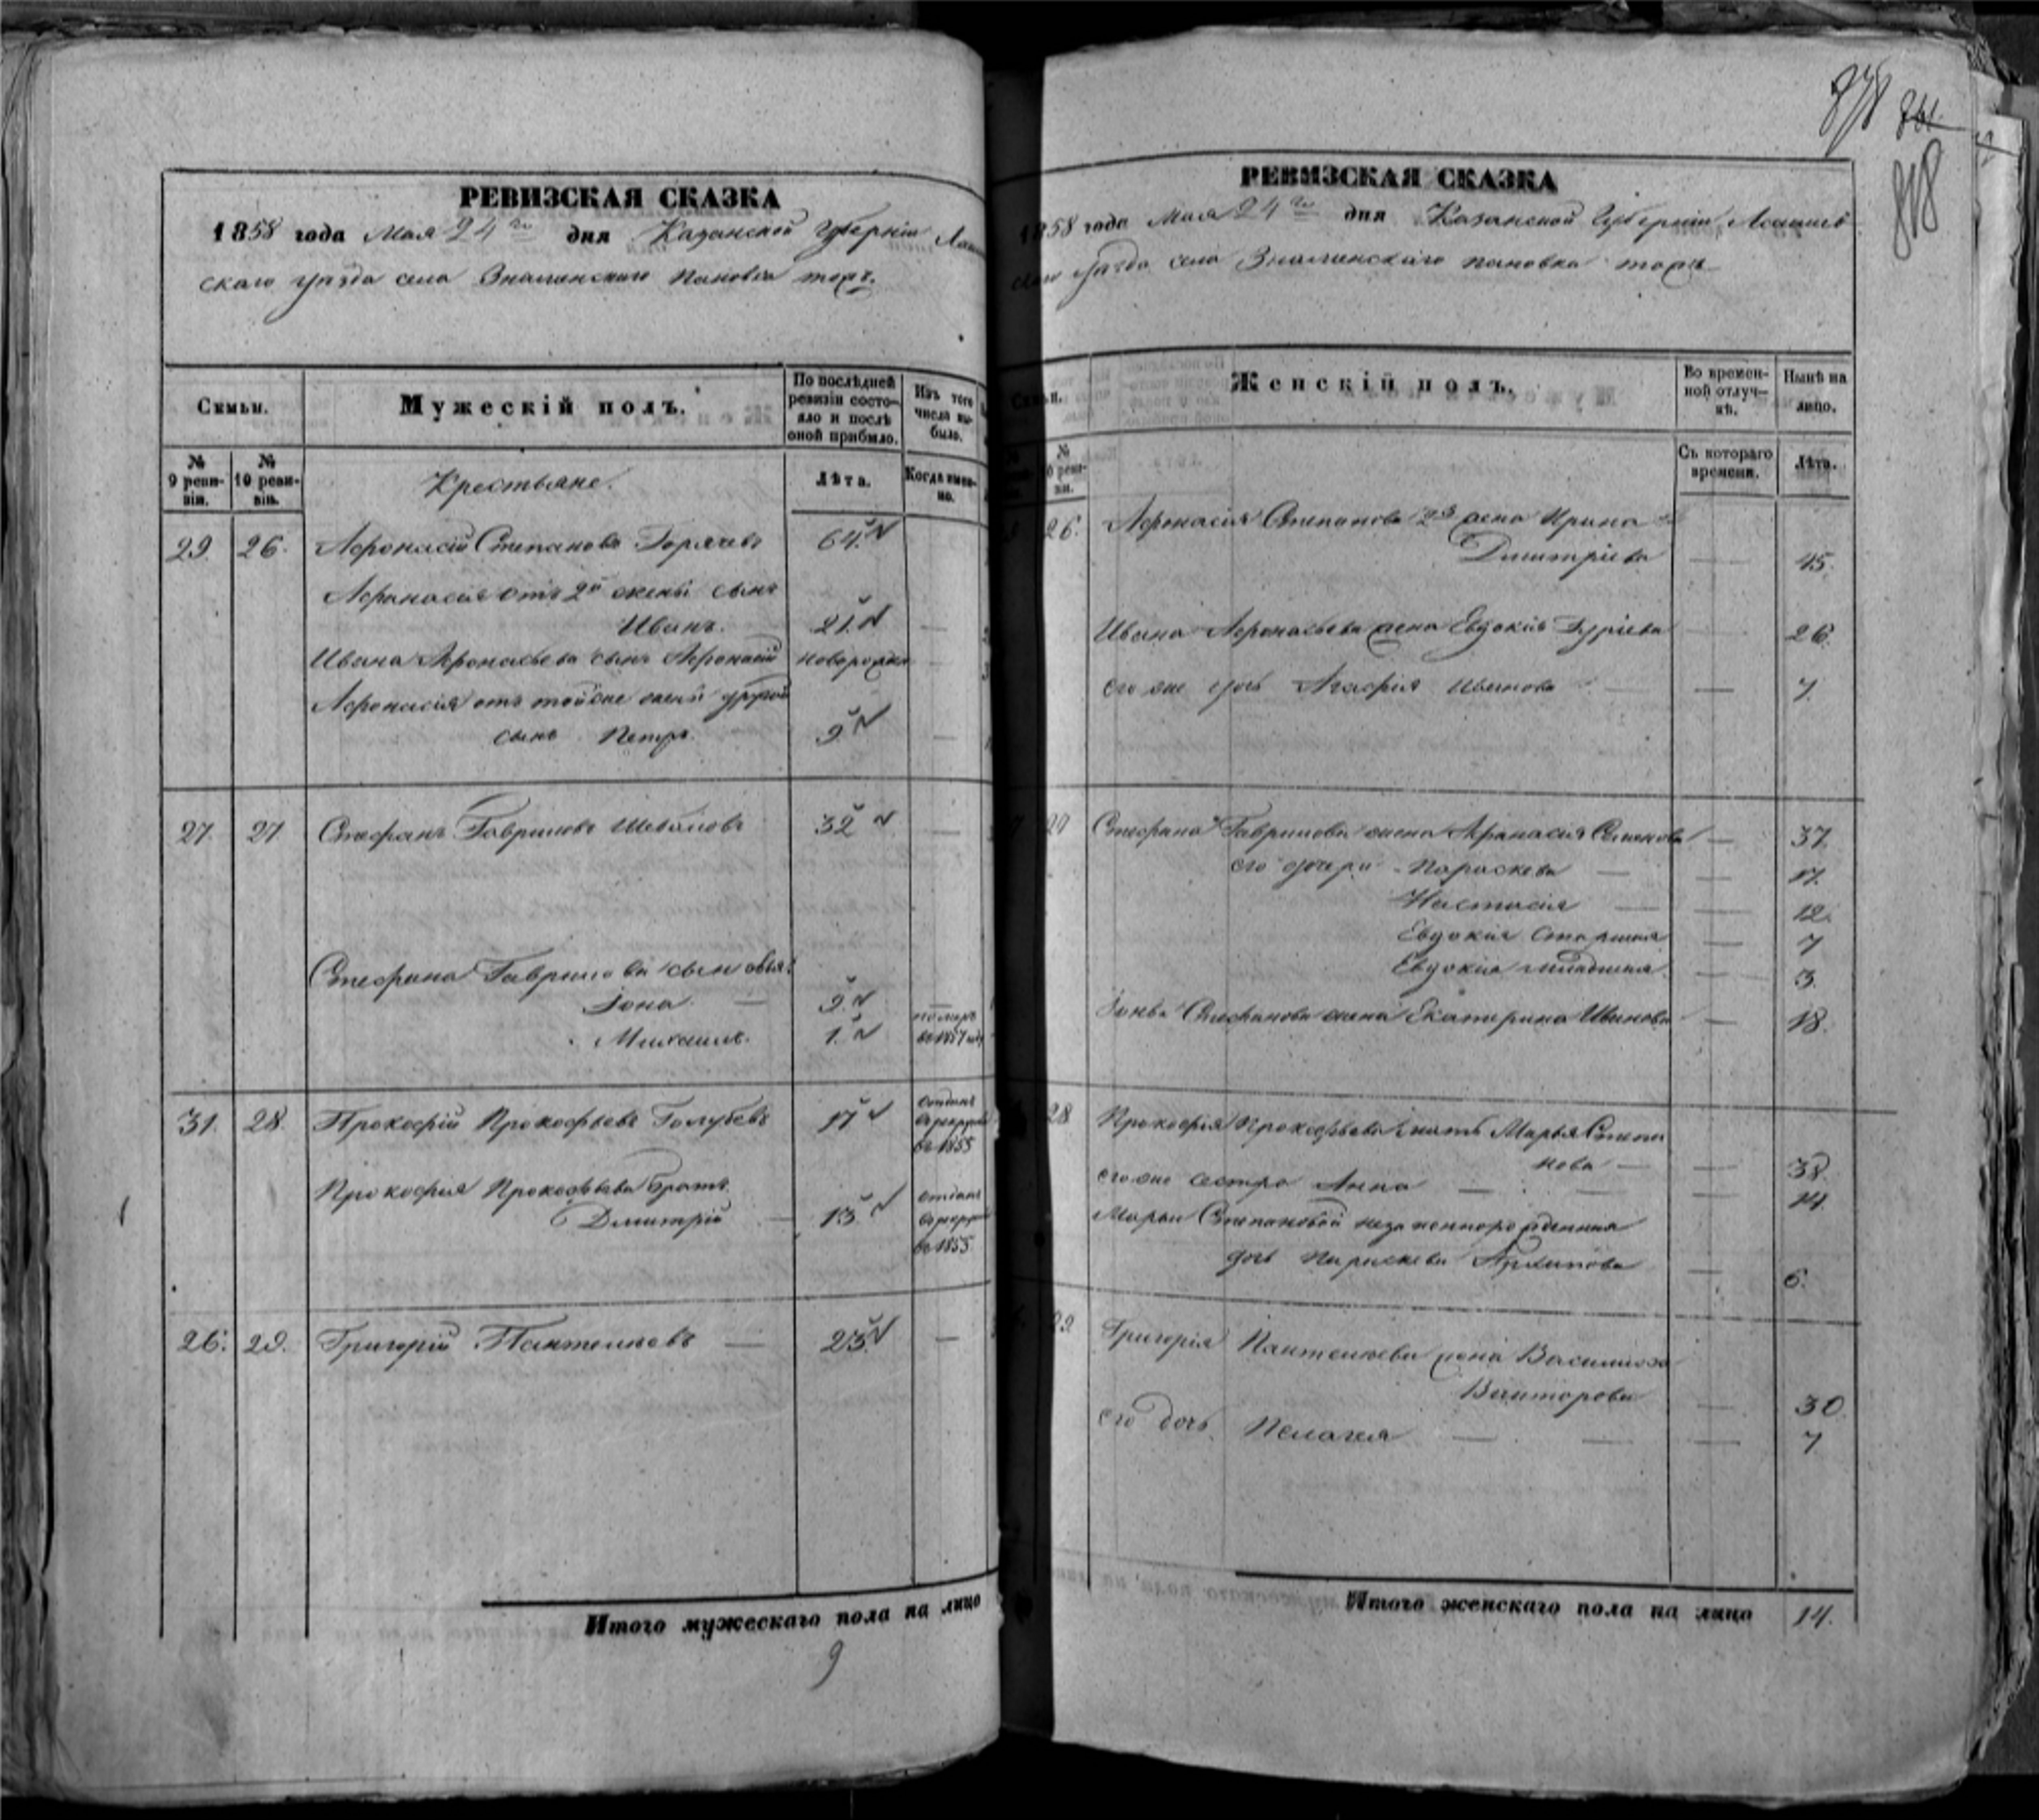 РЕВИЗСКАЯ СКАЗКА
1858 года Мая 24го дня Казанской Губерніи Лаи
скаго уѣзда села Знаменскаго Пановка тожъ.
Семьи.
Мужескій полъ.
По послѣдней
ревизіи состо-
яло и послѣ
оной прибыло.
Изъ того
числа вы-
было.
№
9 реви-
зіи.
№
10 реви-
зіи.
Крестьяне.
Лѣта.
Когда имен-
но.
29. 26. Афонасій Степановъ Горячевъ 64.
Афанасія отъ 2й жены сынъ
Иванъ. 21.
Ивана Афонасьева сынъ Афонасій новорожд
Афонасія отъ той же жены другой
сынъ Петръ. 9
27. 27 Стефанъ Гавриловъ Шеваловъ 32
Стефана Гаврилова сыновья:
Іона. 9.
Михаилъ. 1. померъ
въ 1857 году
31. 28. Прокофій Прокофьевъ Голубевъ 17 отданъ
въ рекруты
въ 1855
Прокофія Прокофьева братъ
Дмитрій 13. отданъ
въ рекруты
въ 1855
26. 29. Григорій Пантелѣевъ 23.
Итого мужескаго пола на лицо
9
878 861
818
РЕВИЗСКАЯ СКАЗКА
1858 года Мая 24го дня Казанской Губерніи Лаишев
скаго уѣзда села Знаменскаго Пановка тожъ
Семьи.
Женскій полъ.
Во времен-
ной отлуч-
кѣ.
Нынѣ на
лицо.
№
10 реви-
зіи.
Съ котораго
времени.
Лѣта.
26. Афонасія Степанова 2я жена Ирина
Дмитріева 45.
Ивана Афонасьева жена Евдокія Гуріева 26.
его же дочь Агафія Иванова 7.
27 Стефана Гаврилова жена Афанасія Семенова 37.
его дочери Параскева 17.
Настасія 12.
Евдокія старшая 7
Евдокія младшая. 3.
Іоны Стефанова жена Екатерина Иванова 18.
28 Прокофія Прокофьева мать Марья Степа
нова 38.
его же сестра Анна 14.
Марьи Степановой незаконнорожденная
дочь Параскева Архипова 6.
29 Григорія Пантелѣева жена Василиса
Викторова 30.
его дочь Пелагея 7
Итого женскаго пола на лицо 14.